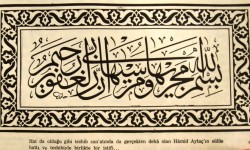 بسم الله مجريها ومرسيها ان ربي لغفور رحيم
Hat da olduğu gibi tezhib san'atında da gerçekten dehâ olan Hâmid Aytaç'ın sülüs
hattı ve tezhibiyle birlikte bir istifi...